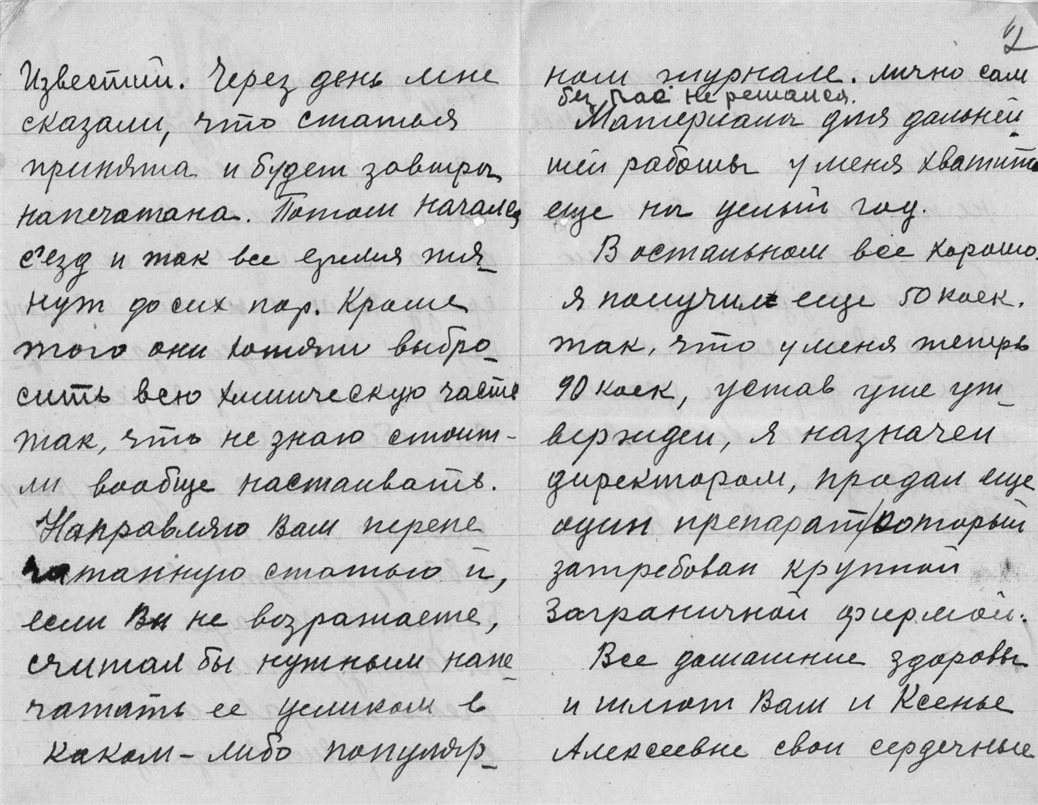 Известий. Через день мне
сказали, что статья
принята и будет завтра
напечатана. Потом начался
с'езд и так все время тя-
нут до сих пор. Кроме
того они хотят выбро-
сить всю химическую часть
так, что не знаю стоит-
ли вообще настаивать.
Направляю Вам перепе
чатанную статью и,
если Вы не возражаете,
считал бы нужным напе-
чатать ее целиком в
каком-либо популяр-
2
ном журнале. Лично сам
без Вас не решался.
Материала для дальней-
шей работы у меня хватит
еще на целый год.
В остальном все хорошо.
Я получил еще 50 коек.
так, что у меня теперь
90 коек, устав уже ут-
вержден, я назначен
директором, продал еще
один препарат, который
затребован крупной
Заграничной фирмой.
Все домашние здоровы
и шлют Вам и Ксенье
Алексеевне свои сердечные